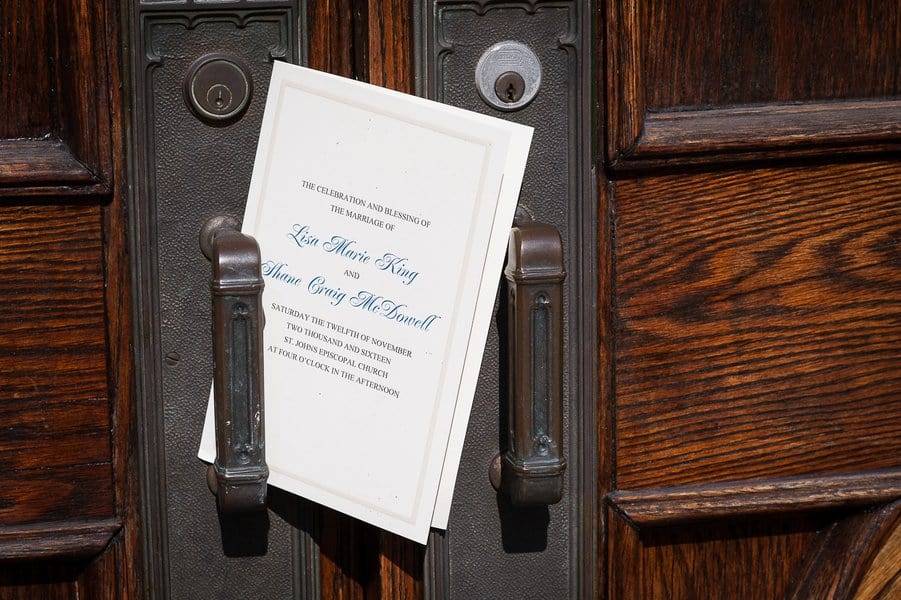 THE CELEBRATION AND BLESSING OF
THE MARRIAGE OF
Lisa Marie King
AND
Shane Craig McDowell
SATURDAY THE TWELFTH OF NOVEMBER
TWO THOUSAND AND SIXTEEN
ST. JOHNS EPISCOPAL CHURCH
AT FOUR O'CLOCK IN THE AFTERNOON